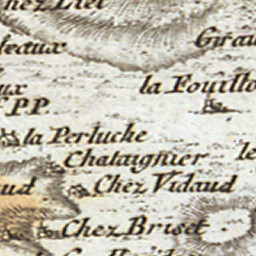 hez Liet
feaux
Girau
la Fouillo
ux
P.P.
la Perluche
Chataignier
le
aud
Chez Vidaud
Chez Briset